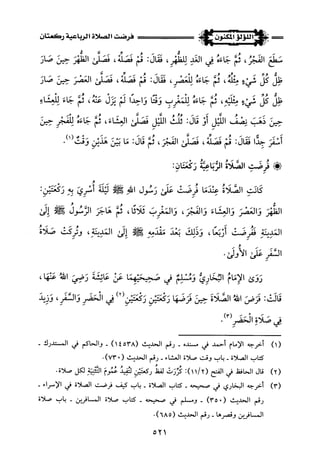 اللؤلؤ المكنون
فرضت الصلاة الرباعية ركعتان
سَطَعَ الفَجْرُ، ثُمَّ جَاءَهُ فِي الغَدِ لِلظُّهْرِ، فَقَالَ: قُمْ فَصَلِّهْ، فَصَلَّى الظُّهْرَ حِينَ صَارَ
ظِلُّ كُلِّ شَيْءٍ مِثْلَهُ، ثُمَّ جَاءَهُ لِلْعَصْرِ، فَقَالَ: قُمْ فَصَلِّهْ، فَصَلَّى العَصْرَ حِينَ صَارَ
ظِلُّ كُلِّ شَيْءٍ مِثْلَيْهِ، ثُمَّ جَاءَهُ لِلْمَغْرِبِ وَقْتًا وَاحِدًا لَمْ يَزُلْ عَنْهُ، ثُمَّ جَاءَ لِلْعِشَاءِ
حِينَ ذَهَبَ نِصْفُ اللَّيْلِ أَوْ قَالَ: ثُلُثُ اللَّيْلِ فَصَلَّى العِشَاءَ، ثُمَّ جَاءَهُ لِلْفَجْرِ حِينَ
أَسْفَرَ جِدًّا فَقَالَ: قُمْ فَصَلِّهْ، فَصَلَّى الفَجْرَ، ثُمَّ قَالَ: مَا بَيْنَ هَذَيْنِ وَقْتٌ»(١).
فُرِضَتِ الصَّلَاةُ الرُّبَاعِيَّةُ رَكْعَتَانِ:
كَانَتِ الصَّلَاةُ عِنْدَمَا فُرِضَتْ عَلَى رَسُولِ اللهِ ﷺ لَيْلَةَ أُسْرِيَ بِهِ رَكْعَتَيْنِ:
الظُّهْرَ وَالعَصْرَ وَالعِشَاءَ وَالفَجْرَ، وَالمَغْرِبَ ثَلَاثًا، ثُمَّ هَاجَرَ الرَّسُولُ ﷺ إِلَى
المَدِينَةِ فَفُرِضَتْ أَرْبَعًا، وَذَلِكَ بَعْدَ مَقْدَمِهِ ﷺ إِلَى المَدِينَةِ، وَتُرِكَتْ صَلَاةُ
السَّفَرِ عَلَى الأُولَى.
رَوَى الإِمَامُ البُخَارِيُّ وَمُسْلِمٌ فِي صَحِيحَيْهِمَا عَنْ عَائِشَةَ رَضِيَ اللهُ عَنْهَا،
قَالَتْ: فَرَضَ اللهُ الصَّلَاةَ حِينَ فَرَضَهَا رَكْعَتَيْنِ رَكْعَتَيْنِ(٢) فِي الحَضَرِ وَالسَّفَرِ، وَزِيدَ
فِي صَلَاةِ الحَضَرِ(٣).
(١) أخرجه الإمام أحمد في مسنده - رقم الحديث (١٤٥٣٨) - والحاكم في المستدرك -
كتاب الصلاة - باب وقت صلاة العشاء - رقم الحديث (٧٣٠).
(٢) قال الحافظ في الفتح (١١/٢): كُرِّرَتْ لفظُ ركعتَيْنِ لتُفِيدَ عُمُومَ التَّثْنِيَةِ لكل صلاة.
(٣) أخرجه البخاري في صحيحه - كتاب الصلاة - باب كيف فرضت الصلاة في الإسراء -
رقم الحديث (٣٥٠) - ومسلم في صحيحه - كتاب صلاة المسافرين - باب صلاة
المسافرين وقصرها - رقم الحديث (٦٨٥).
٥٢١